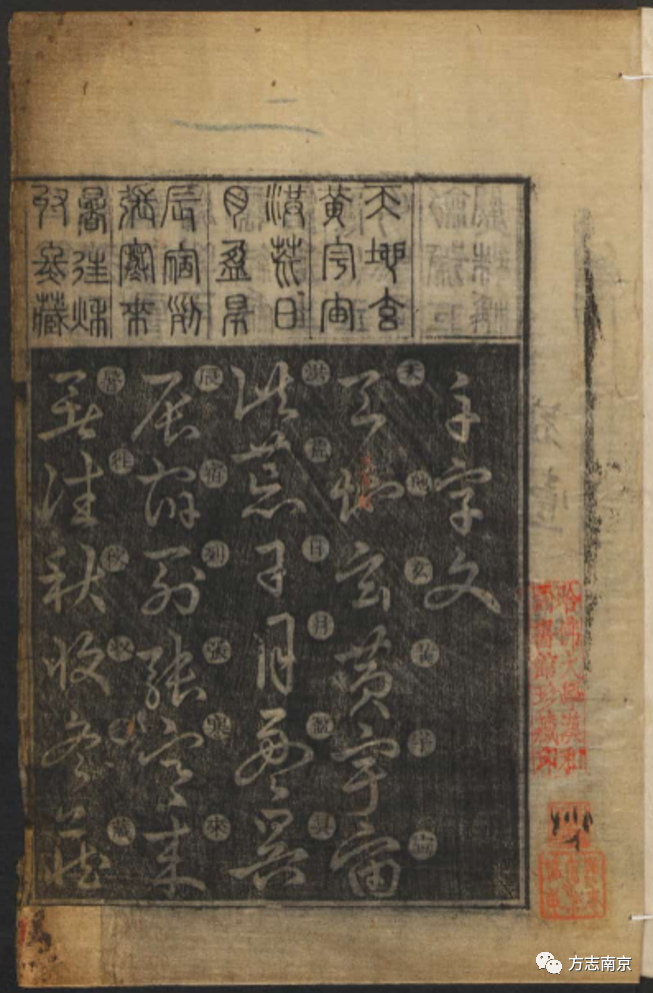 天地玄
黃宇宙
洪荒日
月盈昃
辰宿列
張寒來
暑往秋
收冬藏
千字文
天地玄黃宇宙
天地玄黃宇宙
洪荒日月盈昃
洪荒日月盈昃
辰宿列張寒來
辰宿列張寒來
暑往秋收冬藏
暑往秋收冬藏
哈佛大學漢和
圖書館珍藏印
方志南京